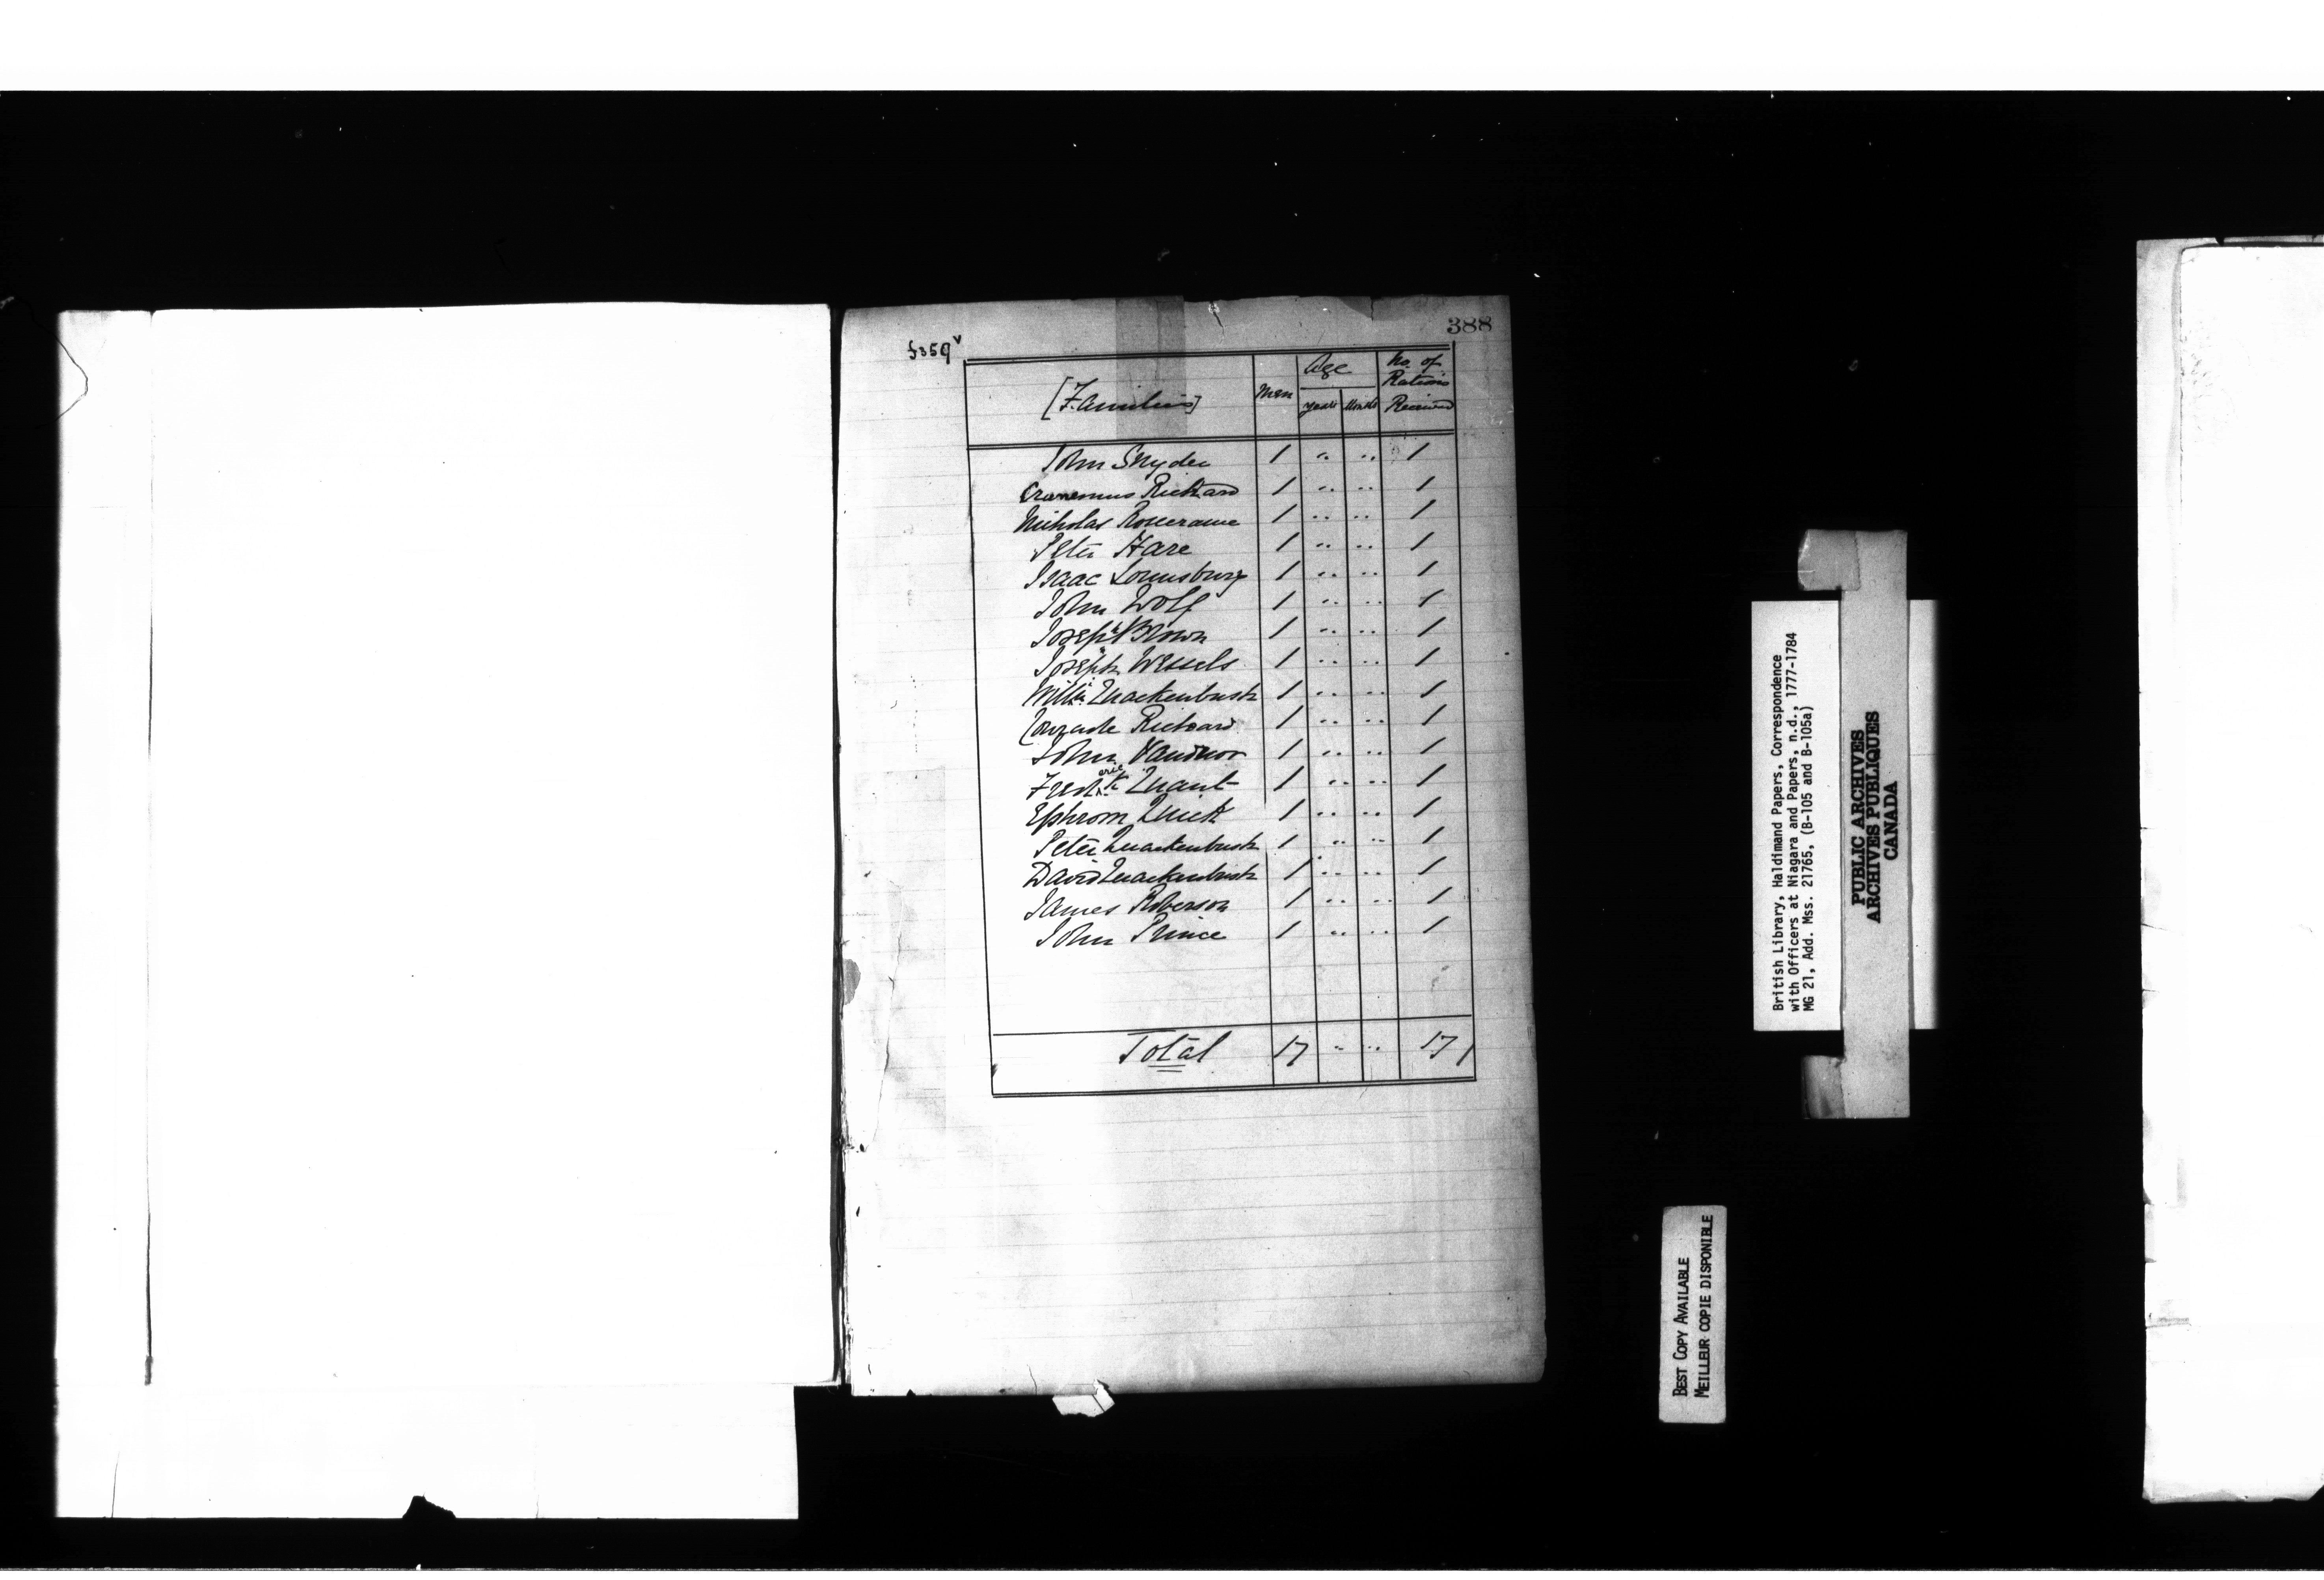 388
f359v
[Families] Men Age years Months No. of Rations Received
John Snyder 1 .. .. 1
Rickard 1 .. .. 1
Nicholas 1 .. .. 1
Peter Hare 1 .. .. 1
Isaac Lounsbury 1 .. .. 1
John Wolf 1 .. .. 1
Joseph Brown 1 .. .. 1
Joseph Wessels 1 .. .. 1
Willm Quackenbush 1 .. .. 1
Conrade Rickard 1 .. .. 1
John 1 .. .. 1
Quant 1 .. .. 1
Ephrom Quick 1 .. .. 1
Peter Quackenbush 1 .. .. 1
David Quackenbush 1 .. .. 1
James Roberson 1 .. .. 1
John Prince 1 .. .. 1
Total 17 .. .. 17
British Library, Haldimand Papers, Correspondence
with Officers at Niagara and Papers, n.d., 1777-1784
MG 21, Add. Mss. 21765, (B-105 and B-105a)
PUBLIC ARCHIVES
ARCHIVES PUBLIQUES
CANADA
BEST COPY AVAILABLE
MEILLEUR COPIE DISPONIBLE